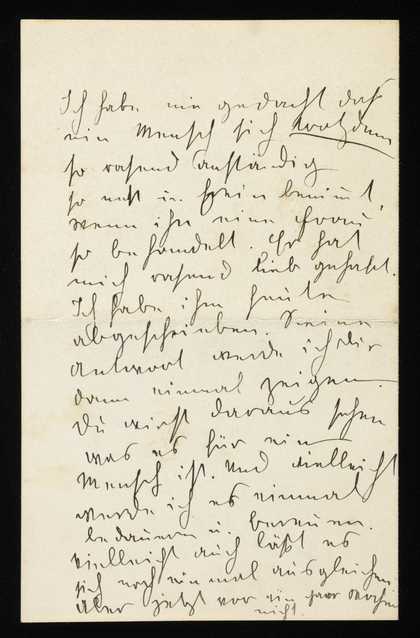 Ich habe nie gedacht daß
ein Mensch sich trotzdem
so rasend anständig
so nett u. fein benimt,
wenn ihn eine Frau
so behandelt. Er hat
mich rasend lieb gehabt.
Ich habe ihm heute
abgeschrieben. Seine
Antwort werde ich dir
dann einmal zeigen.
Du wirst daraus sehen
was es für ein
Mensch ist. Und vielleicht
werde ich es einmal
bedauern u. bereuen.
vielleicht auch läßt es
sich noch einmal ausgleichen.
Aber jetzt vor ein paar Wochen
nicht.